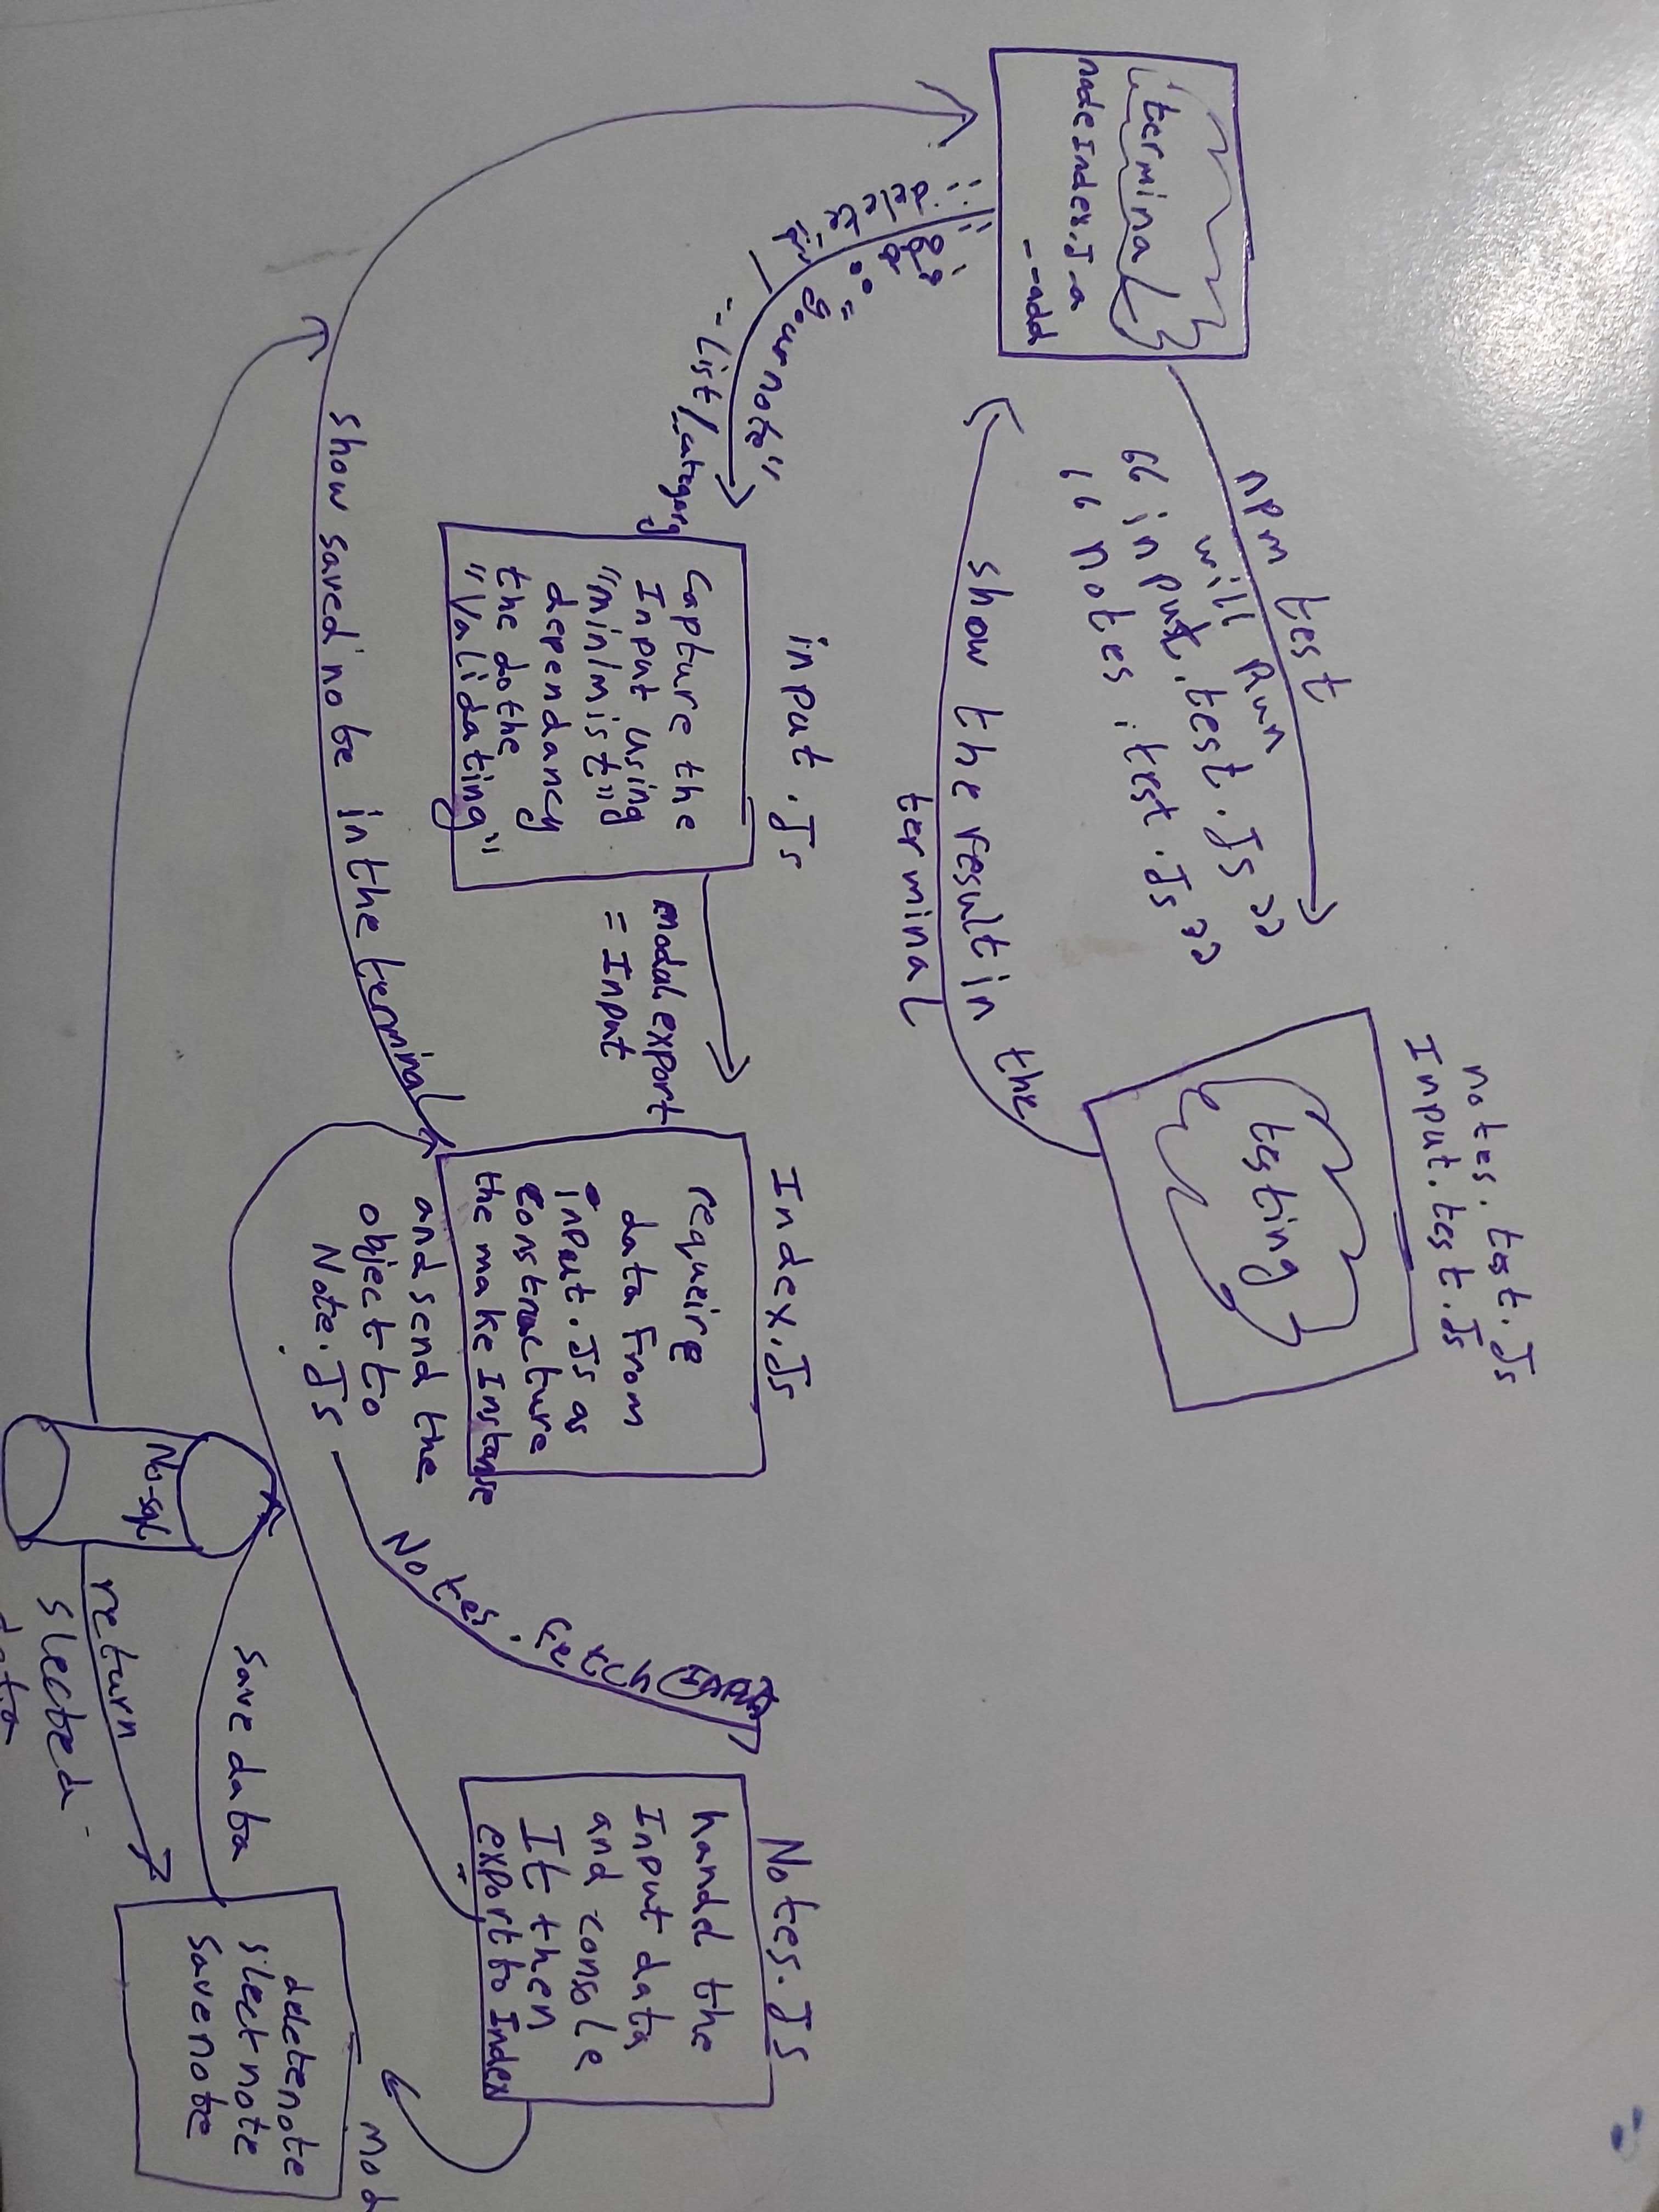 notes.test.Js
Input.test.Js
testing
npm test
will Run
"input.test.Js"
"notes.test.Js"
terminal
node Index.J -a
--add
show the result in the
terminal
-a
--add: "your note"
--delete "id"
--List/--category
input.Js
Capture the
Input using
"minimist"
dependancy
the do the
"Validating"
modal export
= Input
Index.Js
requeire
data From
input.Js as
constracture
the make Instanse
and send the
object to
Note.JS
Notes.Fetch
Notes.JS
handel the
Input data
and console
It then
export to Index
show saved note in the terminal
mod
deletenote
slect note
savenote
save data
No-sql
return
slected
data